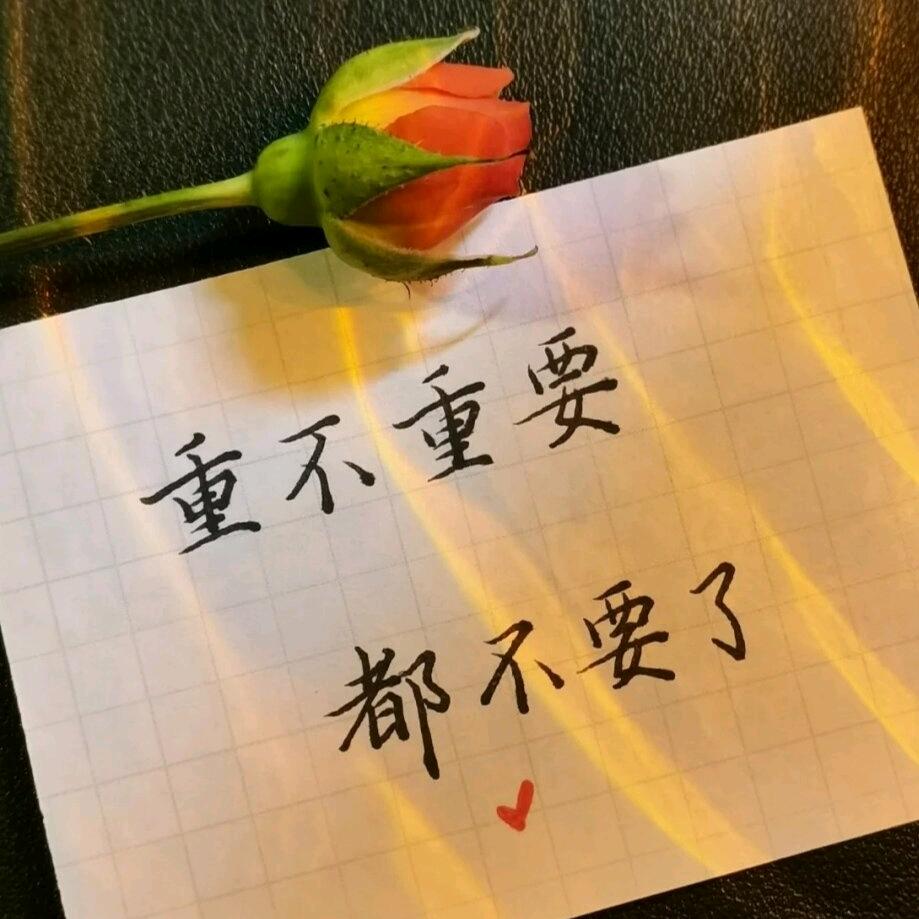 重不重要
都不要了